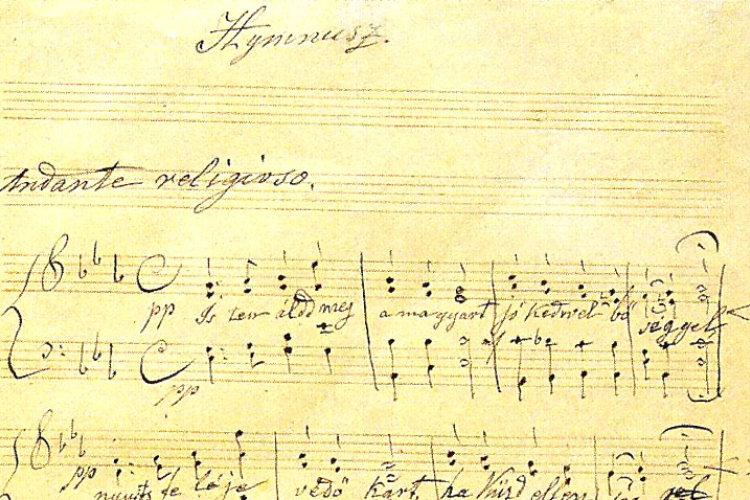 Hymnusz.
Andante religioso.
pp Is ten áldd meg a magyart jó kedvvel bő séggel
pp
pp nyujts fe léje védő kart, ha küzd ellen